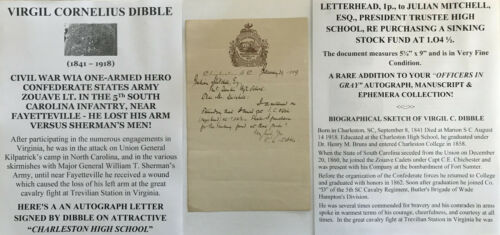 VIRGIL CORNELIUS DIBBLE
(1841 – 1918)
CIVIL WAR WIA ONE-ARMED HERO
CONFEDERATE STATES ARMY
ZOUAVE LT. IN THE 5TH SOUTH
CAROLINA INFANTRY, NEAR
FAYETTEVILLE - HE LOST HIS ARM
VERSUS SHERMAN'S MEN!
After participating in the numerous engagements in
Virginia, he was in the attack on Union General
Kilpatrick's camp in North Carolina, and in the various
skirmishes with Major General William T. Sherman's
Army, until near Fayetteville he received a wound
which caused the loss of his left arm at the great
cavalry fight at Trevilian Station in Virginia.
HERE'S A AN AUTOGRAPH LETTER
SIGNED BY DIBBLE ON ATTRACTIVE
"CHARLESTON HIGH SCHOOL"
LETTERHEAD, 1p., to JULIAN MITCHELL,
ESQ., PRESIDENT TRUSTEE HIGH
SCHOOL, RE PURCHASING A SINKING
STOCK FUND AT 1.04 ½.
The document measures 5¾" x 9" and is in Very Fine
Condition.
A RARE ADDITION TO YOUR "OFFICERS IN
GRAY" AUTOGRAPH, MANUSCRIPT &
EPHEMERA COLLECTION!
<<:>>
BIOGRAPHICAL SKETCH OF VIRGIL C. DIBBLE
Born in Charleston, SC, September 8, 1841 Died at Marion S C August
14 1918. Educated at the Charleston High School, he graduated under
Dr. Henry M. Bruns and entered Charleston College in 1858.
When the State of South Carolina seceded from the Union on December
20, 1860, he joined the Zouave Cadets under Capt C.E. Chichester and
was present with his Company at the bombardment of Fort Sumter.
Before the organization of the Confederate forces he returned to College
and graduated with honors in 1862. Soon after graduation he joined Co.
"D" of the 5th SC Cavalry Regiment, Butler's Brigade of Wade
Hampton's Division.
He was several times commended for bravery and his comrades in arms
spoke in warmest terms of his courage, cheerfulness, and courtesy at all
times. In the great cavalry fight at Trevilian Station in Virginia he was